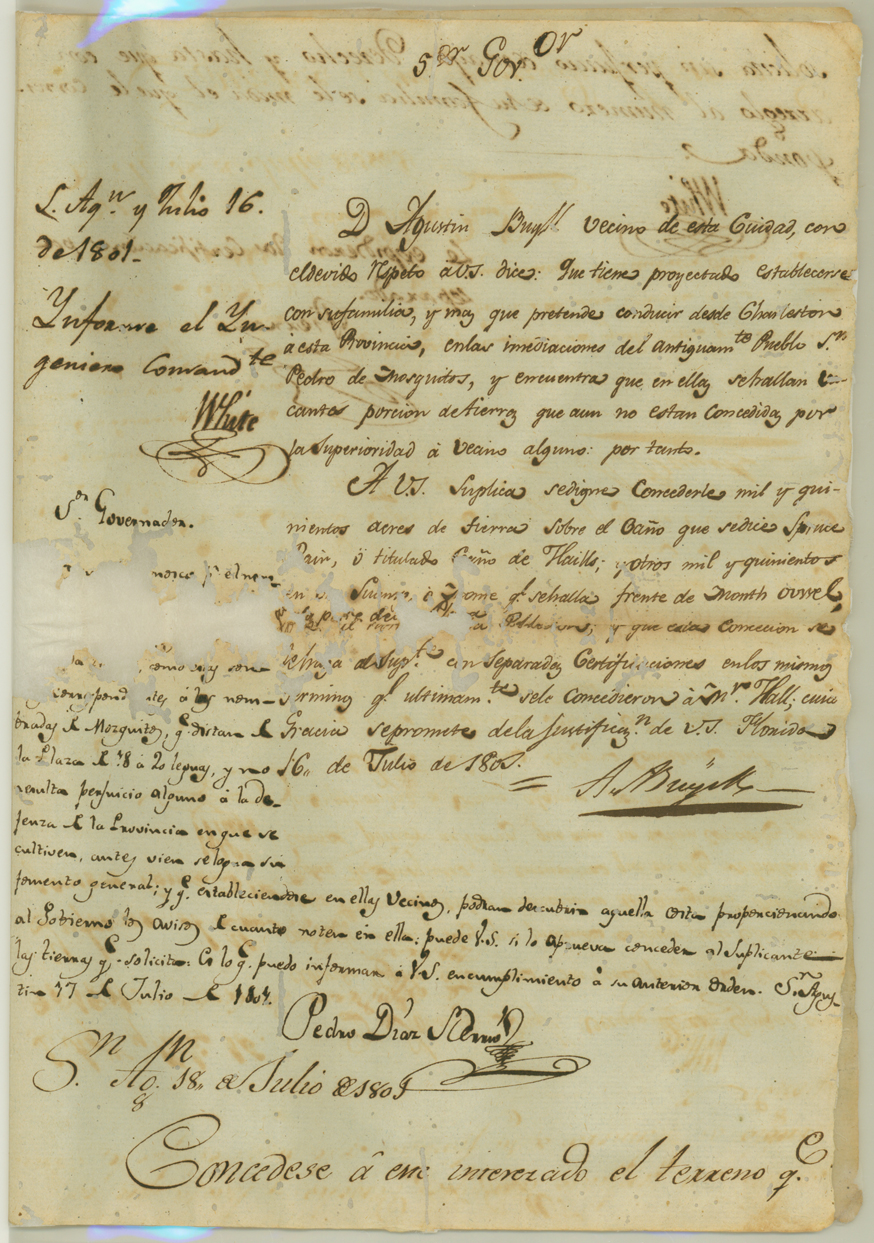 Sor Govor
S. Agn y Julio 16.
de 1801-
Ynforme el Yn-
geniero Comandte
White
D Agustin Buyck vecino de esta Ciudad, con
eldevido rspeto à V.S. dice: Que tiene proyectado establecerse
con sufamilia, y mas que pretende conducir desde Charleston
à esta Provincia, enlas imediaciones del antiguamte Pueblo Sn
Pedro de Mosquitos, y encuentra que en ellas sehallan va-
cantes porcion detierras que aun no estan concedidas por
la Superioridad à vecino alguno: por tanto.
A V.S. Suplica sedigne Concederle mil y qui-
nientos acres de tierra sobre el Caño que sedice Spruce
ò titulado Caño de Haills; y otros mil y quinientos
en qe sehalla frente de Month Ovvel,
y que esta Concecion se
al Supte con separadas Certificaciones enlos mismos
terminos qe ultimamte sele Concedieron à Mr. Hall; cuia
Gracia sepromete dela Justificazn de V.S. Florida
16,, de Julio de 1801.
A. Buyck
Sor Governador.
correspondientes à las nom-
bradas de Mosquitos, qe distan de
la Plaza de 18 à 20 leguas, y no
resulta perjuicio alguno à la de-
fenza de la Provincia en que se
cultiven, antes vien selogra su
fomento general; y qe estableciendose en ellas vecinos, podran descubrir aquella costa proporcionando
al Gobierno los avisos de cuanto noten en ella; puede V.S. si lo aprueva conceder al Suplicante
las tierras qe solicita: Es lo qe puedo informar à V.S. encumplimiento à su anterior orden. Sn Agus-
tin 17 de Julio de 1801.
Pedro Díaz Berrio
Sn Agn 18,, de Julio de 1801
Concedese â este interezado el terreno qe